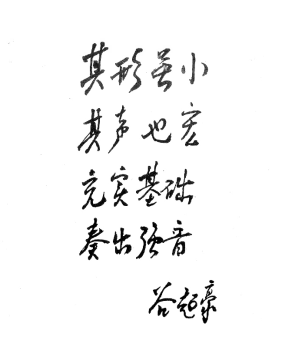 其形虽小
其声也宏
充实基础
奏出强音
谷超豪